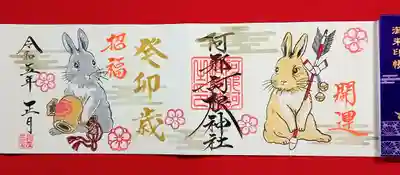 御朱印帳
開運
阿邪訶根神社
癸卯歳
招福
令和五年
正月